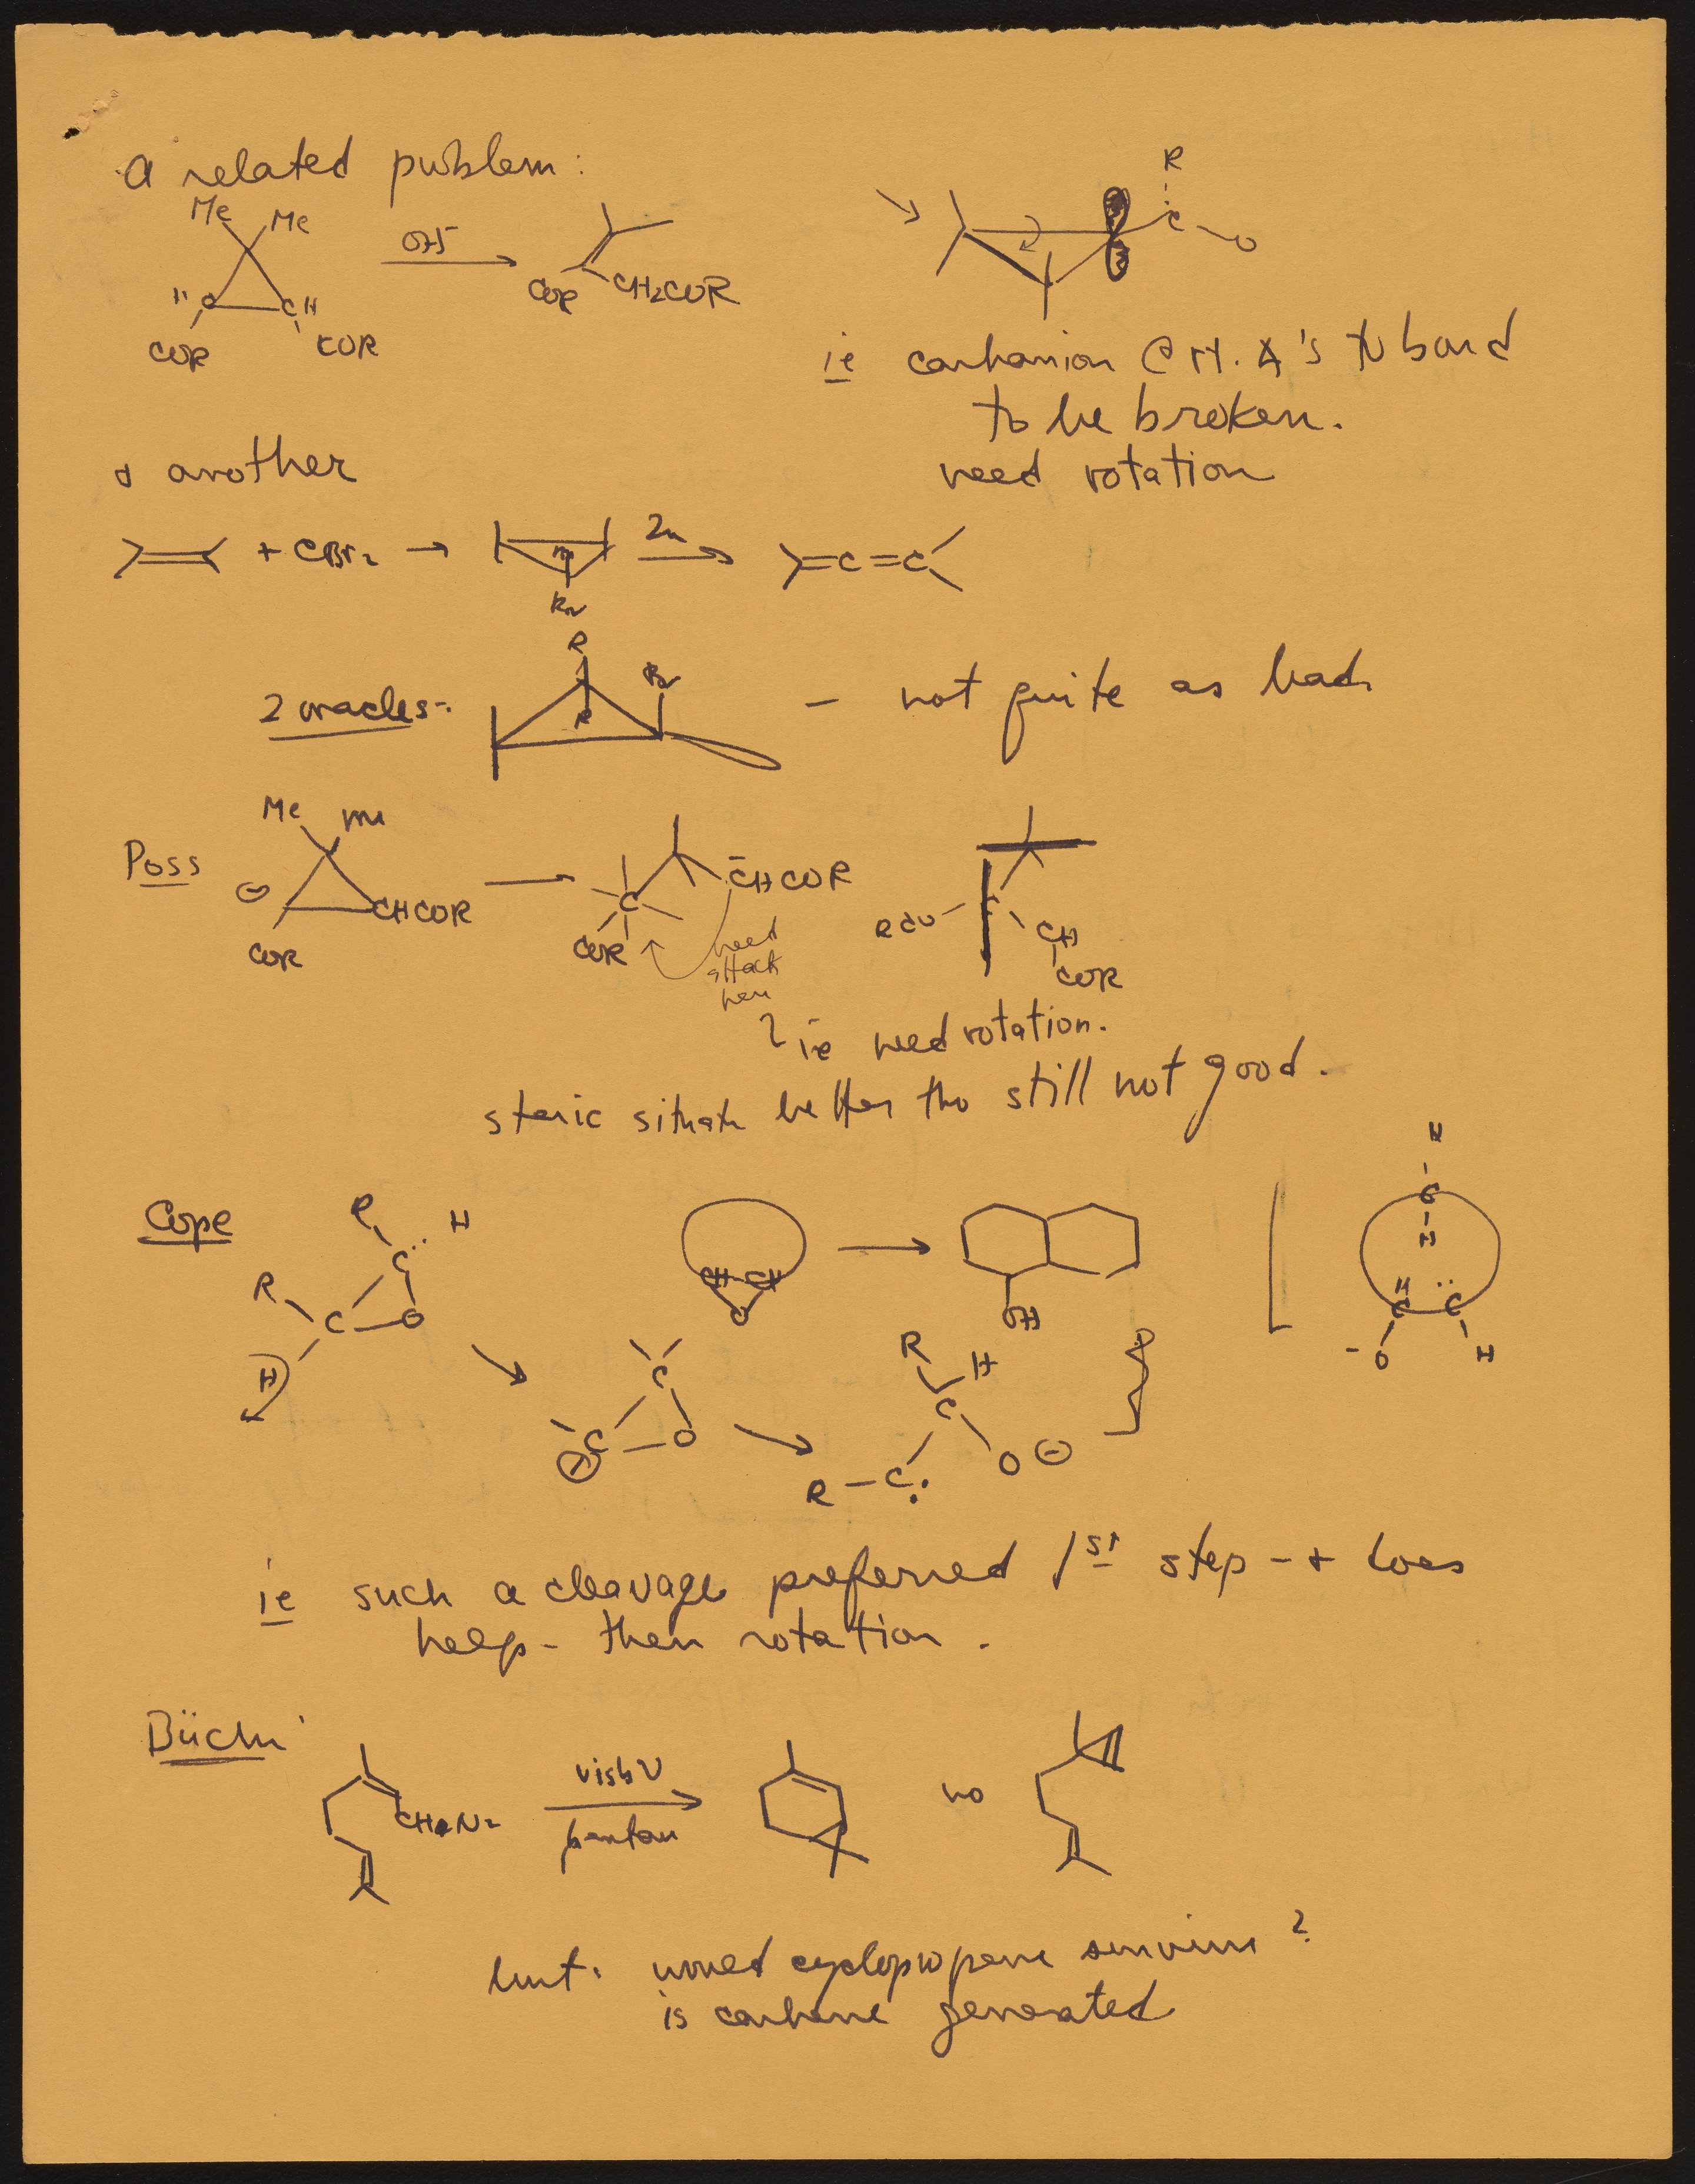 A related problem:
Me Me
OH⁻
H C CH
COR COR
COR CH2COR
R
C O
ie carbanion @ rt. ∡'s to bond
to be broken.
need rotation
& another
+ CBr2 → Zn =C=C
Br
R Br
R
– not quite as bad
Poss
Me Me
⊖
CHCOR
COR
C
COR
C̄HCOR
need
attack
here
RCO C
CH
COR
? ie need rotation.
steric situatn better tho still not good.
Cope
R H
C:
R C O
H
CH CH
O
OH
H
C
H
H C C:
-O H
C
C O
⊖
R H
C
R–C: O⊖
ie such a cleavage preferred 1st step – & does
help – then rotation.
Büchi
CHN2
vish ν
pentan
no
but: would cyclopropene survive?
is carbene generated